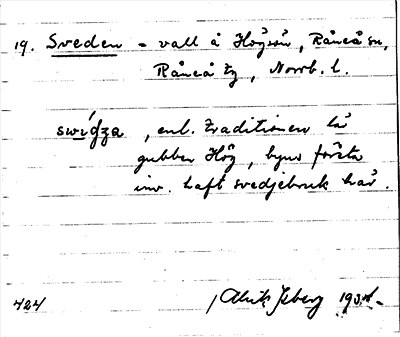 19. Sveden - vall å Högsön, Råneå sn,
Råneå tg, Norrb. l.
swíǥza, enl. traditionen lä
gubben Hög, byns första
inv. haft svedjebruk här.
424 Isberg 193